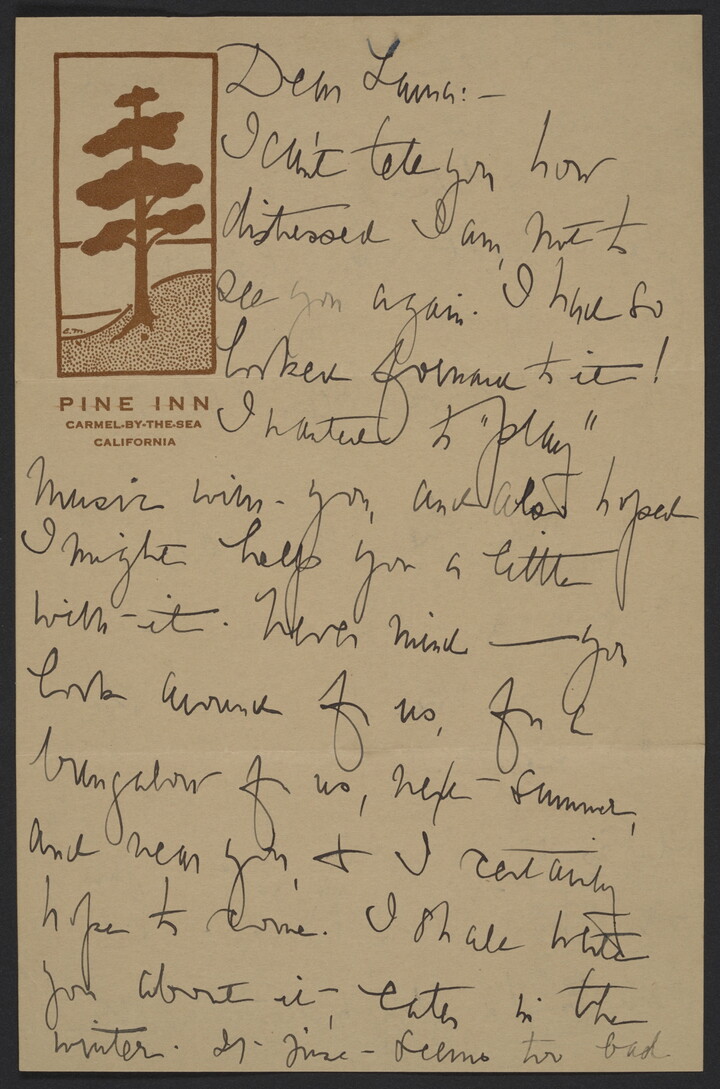 PINE INN
CARMEL-BY-THE-SEA
CALIFORNIA
Dear Laura:—
I can't tell you how
distressed I am, not to
see you again. I had so
looked forward to it!
I wanted to "play"
music with you, and also hoped
I might help you a little
with it. Never mind — you
look around for us, for a
bungalow for us, next summer,
and near you, & I certainly
hope to come. I shall write
you about it, later in the
winter. It just seems too bad